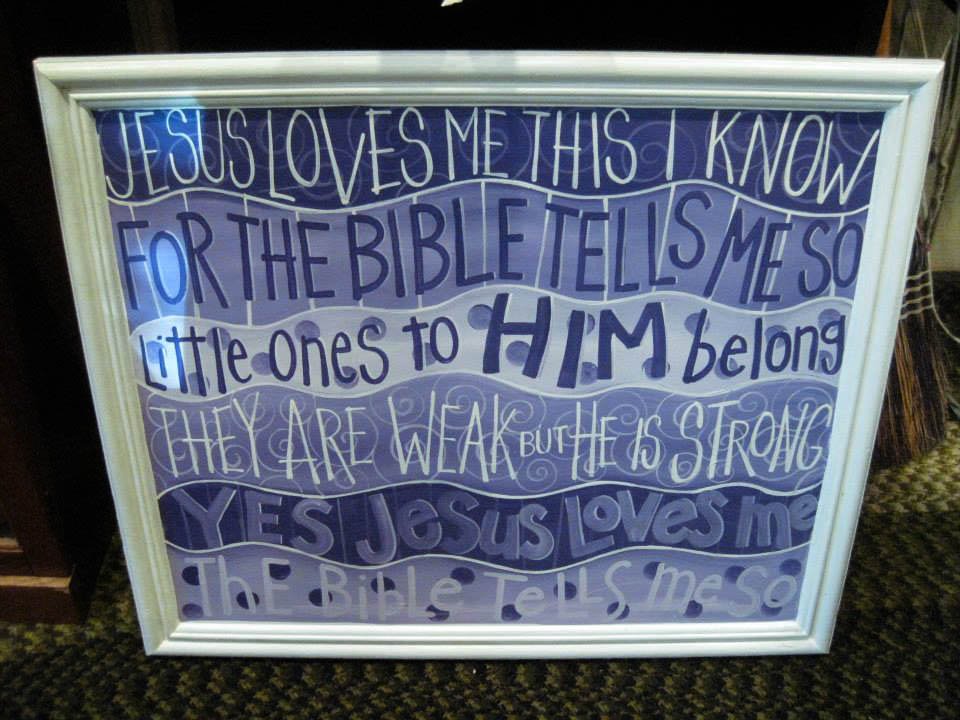 JESUS LOVES ME THIS I KNOW
FOR THE BIBLE TELLS ME SO
Little ones to HIM belong
THEY ARE WEAK BUT HE IS STRONG
YES Jesus Loves me
The Bible Tells me So